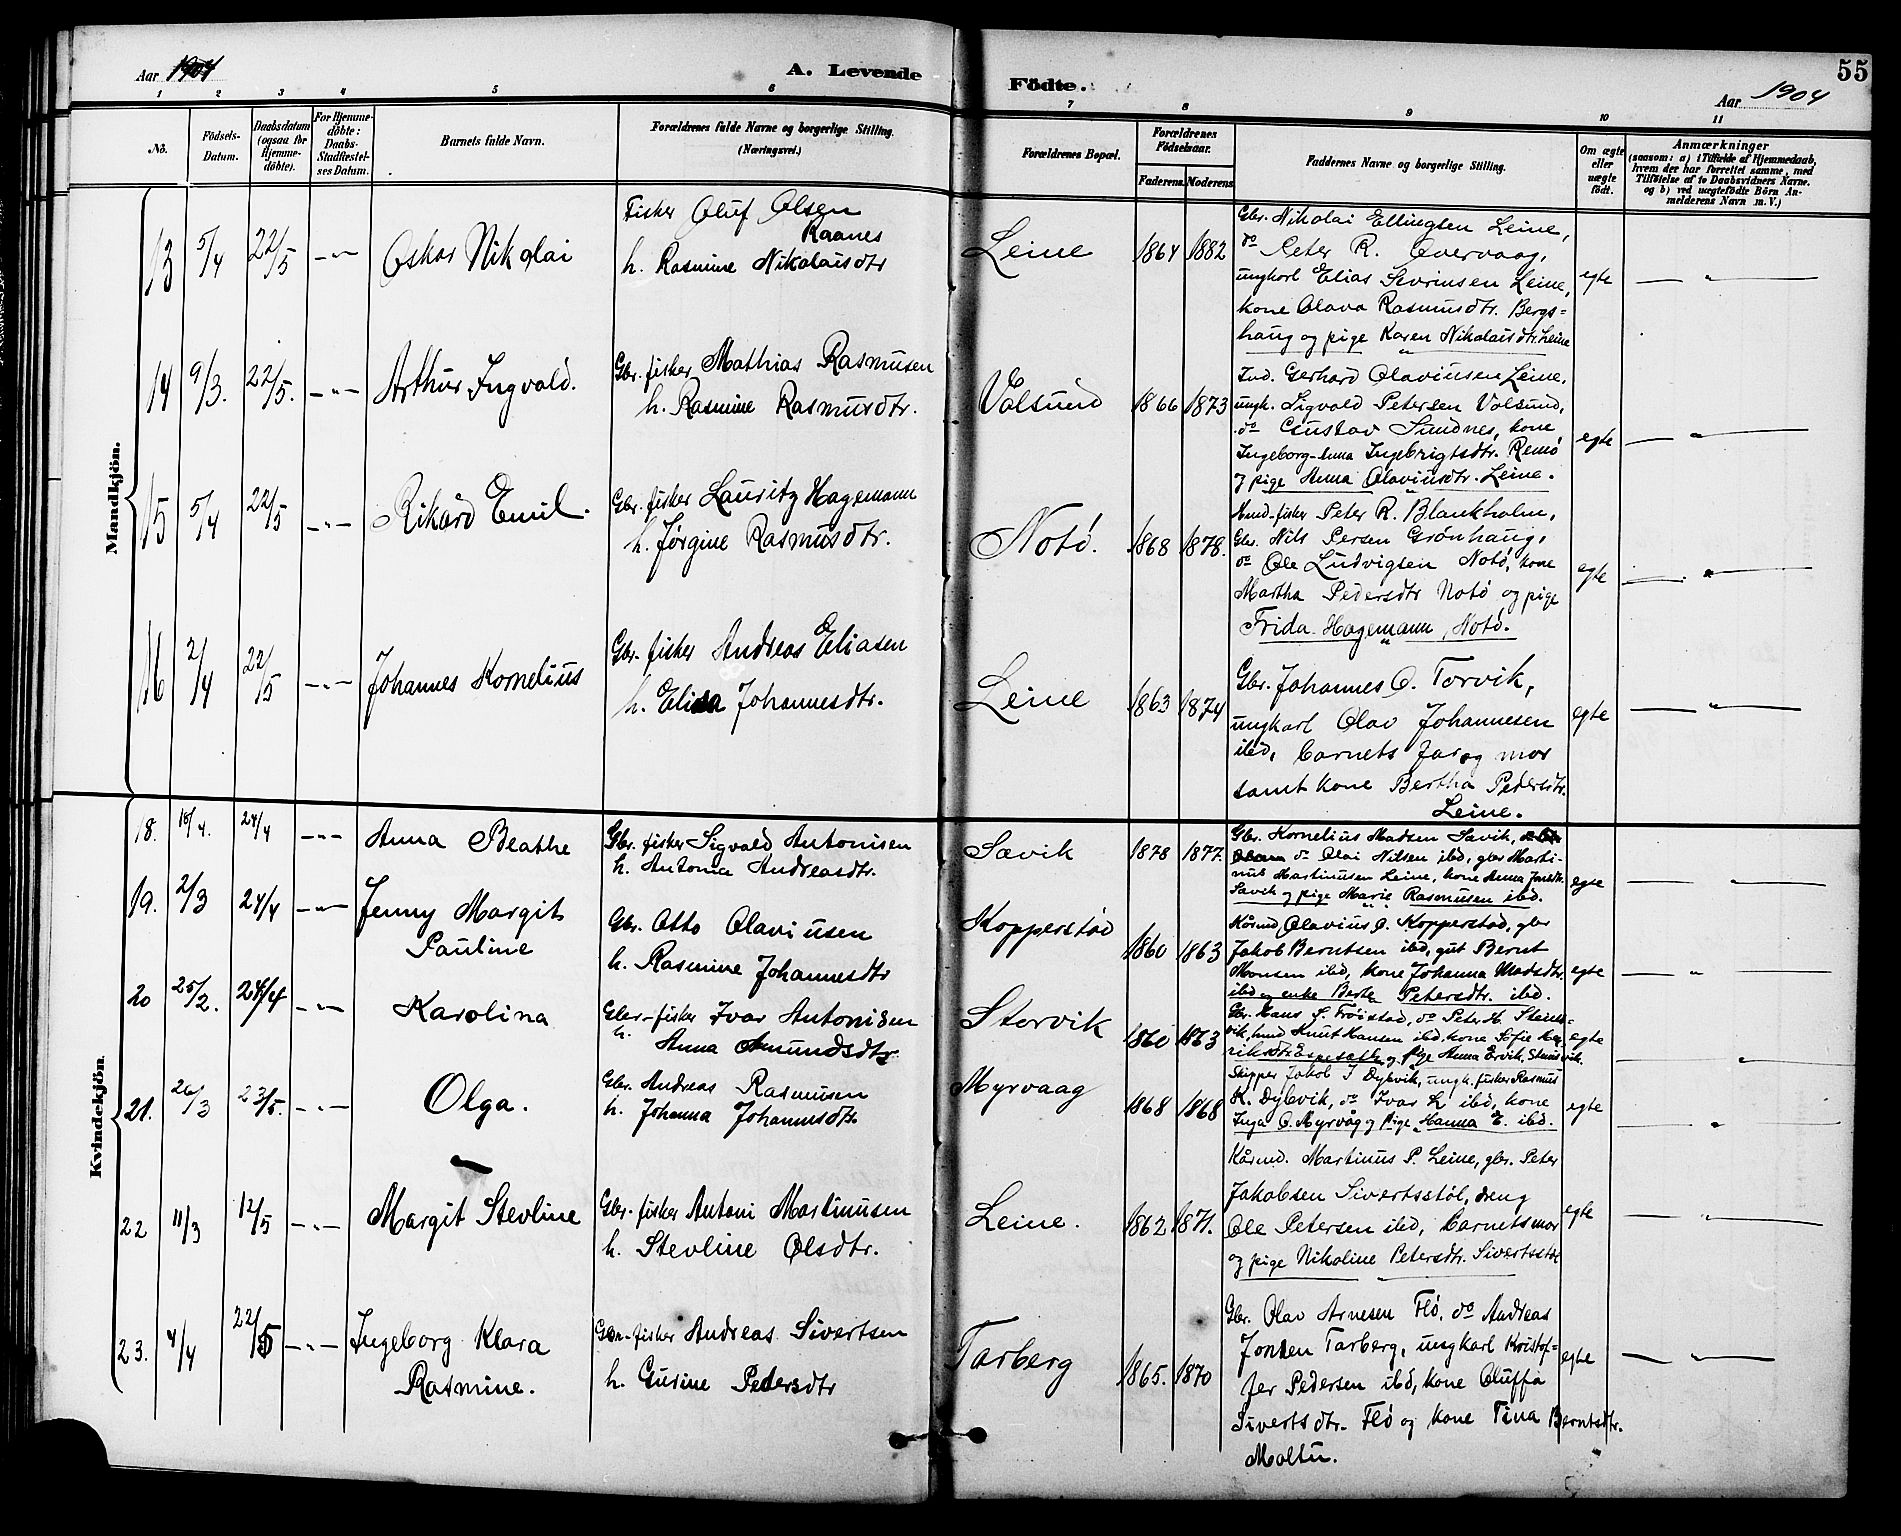 Aar 1904
A. Levende
Födte.
Aar 1904
55
1 2 3 4 5 6 7 8 9 10 11
No.
Födsels-
Datum.
Daabsdatum
(ogsaa for
Hjemme-
döbte).
For Hjemme-
döbte:
Daabs-
Stadfæstel-
ses Datum.
Barnets fulde Navn.
Forældrenes fulde Navne og borgerlige Stilling.
(Næringsvei.)
Forældrenes Bopæl.
Forældrenes
Födselsaar.
Faderens. Moderens.
Faddernes Navne og borgerlige Stilling.
Om ægte
eller
uægte
födt.
Anmærkninger
(saasom: a) i Tilfælde af Hjemmedaab,
hvem der har forrettet samme, med
Tilföielse af to Daabsvidners Navne.
og b) ved uægtefödte Börn An-
melderens Navn m. V.)
Mandkjön.
13 5/4 22/5 -"- Oskar Nikolai
Fisker Oluf Olsen
Raanes
h. Rasmine Nikolaisdtr
Leine 1864 1882
Gbr. Nikolai Ellingsen Leine,
do Peter R. Overvaag,
ungkarl Elias Sivrinsen Leine,
kone Olava Rasmusdtr. Bergs-
haug og pige Karen Nikolaisdtr. Leine
egte — " —
14 9/3. 22/5. -"- Arthur Ingvald.
Gbr. fisker Mathias Rasmusen
h. Rasmine Rasmusdtr.
Volsund 1866 1873
Ind. Gerhard Olaviusen Leine,
ungk. Sigvald Petersen Volsund,
do Gustav Sundnes, kone
Ingeborg-Anna Ingebrigtsdtr. Remö
og pige Anna Olaviusdtr. Leine.
egte — " —
15 5/4 22/5 -"- Rikard Emil.
Gbr. fisker Lauritz Hagemann
h. Jørgine Rasmusdtr.
Notö. 1868 1878.
Hmd-fisker Peter R. Blankholm,
Gbr. Nils Persen Grönhaug,
do Ole Ludvigsen Notö, kone
Martha Pedersdtr Notö og pige
Frida Hagemann, Notö.
egte — " —
16 2/4 22/5 -"- Johannes Kornelius
Gbr. fisker Andreas Eliasen
h. Elisa Johannesdtr.
Leine 1863 1874
Gbr. Johannes O. Torvik,
ungkarl Olav Johannesen
ibid, barnets far og mor
samt kone Bertha Pedersdtr.
Leine.
egte — " —
Kvindekjön
18. 18/4. 24/4 -"- Anna Beathe
Gbr. fisker Sigvald Antonisen
h. Antonia Andreasdtr.
Sævik 1878 1877.
Gbr. Kornelius Madsen Savik,
do Olai Nilsen ibd, gbr Marti-
nus Martinusen Leine, kone Anna Jonsdtr.
Savik og pige Marie Rasmusen ibd.
egte — " —
19. 2/3 24/4 -"- Jenny Margit
Pauline
Gbr. Otto Olaviusen
h. Rasmine Johannesdtr
Kopperstad 1860 1863
Kårmd. Olavius O. Kopperstad, gbr
Jakob Berntsen ibd, gut Bernt
Monsen ibd, kone Johanna Madsdtr.
ibd og enke Berte Petersdtr. ibd.
egte — " —
20 25/2. 24/4 -"- Karolina
Gbr.-fisker Ivar Antonisen
h. Anna Amundsdtr.
Storvik 1860 1863
Gbr. Hans S. Tröistad, do Peter H. Steins-
vik, hmd Knut Hansen ibd, kone Sofie Hen-
riksdtr Espesæth og pige Anna Ervik. Steinsvik.
egte — " —
21. 26/3 23/5. -"- Olga.
Gbr. Andreas Rasmusen
h. Johanna Johannesdtr.
Myrvaag 1868 1868
Skipper Jakob J Dybvik, ungk. fisker Rasmus
K. Dybvik, do Ivar L ibd, kone
Inga O. Myrvåg og pige Hanna E. ibd.
egte — " —
22 11/3 12/5 -"- Margit Stevline
Gbr. fisker Antoni Martinusen
h. Stevline Olsdtr.
Leine. 1862 1871.
Kårmd. Martinus P. Leine, gbr. Peter
Jakobsen Sivertsstöl, dreng
Ole Petersen ibd, barnets mor
og pige Nikoline Petersdtr. Sivertsstöl
egte — " —
23. 4/4 22/5 -"- Ingeborg Klara
Rasmine.
Gbr.-fisker Andreas Sivertsen
h. Gurine Pedersdtr
Tarberg 1865. 1870
Gbr. Olav Arnesen Flö, do Andreas
Jonsen Tarberg, ungkarl Kristof-
fer Pedersen ibd, kone Oluffa
Sivertsdtr. Flö og kone Tina Berntsdtr.
Moltu.
egte — " —